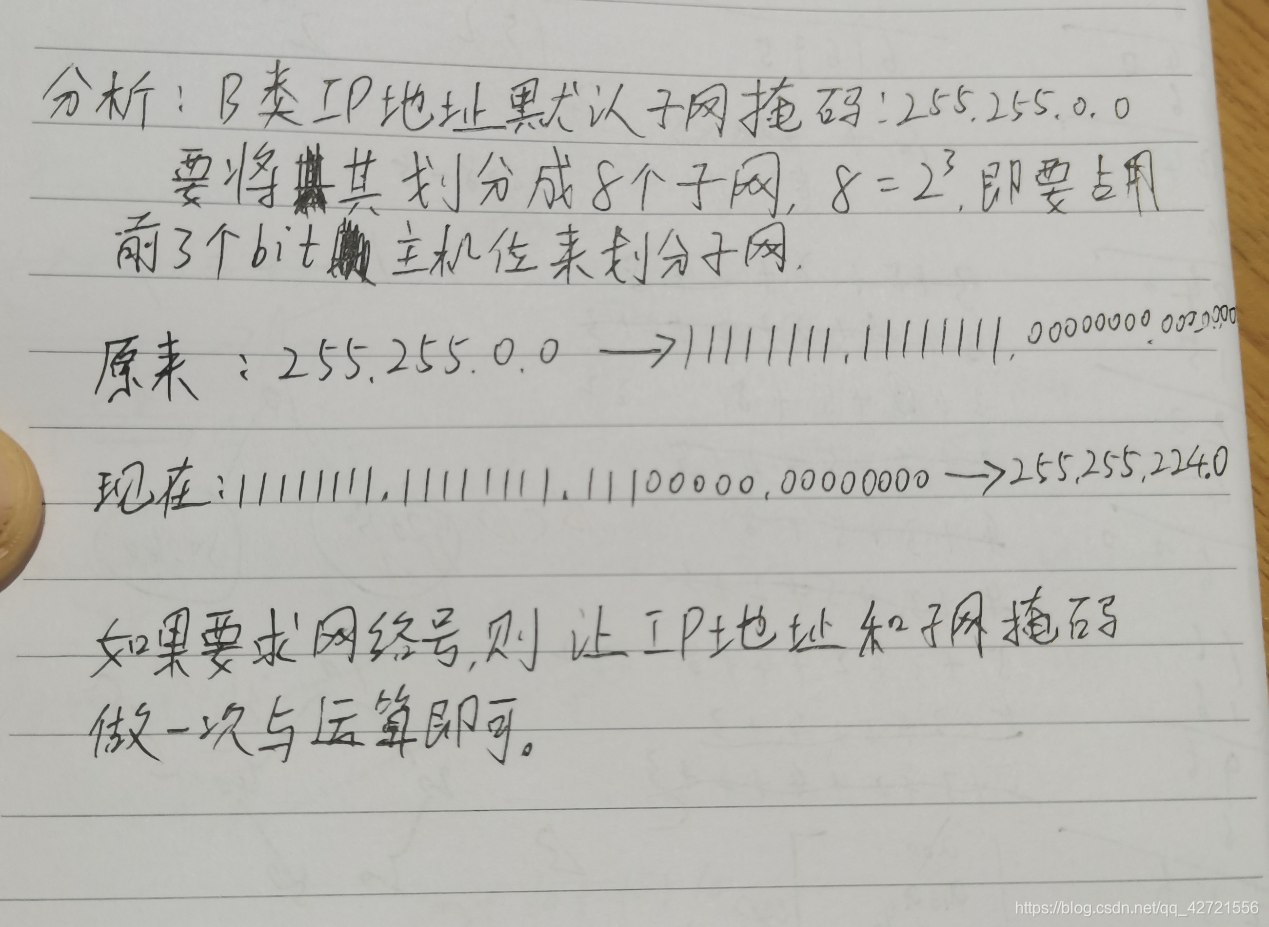 分析：B类IP地址默认子网掩码：255.255.0.0
要将其划分成8个子网，8=2³，即要占用
前3个bit主机位来划分子网.
原来：255.255.0.0 → 11111111.11111111.00000000.00000000
现在：11111111.11111111.11100000.00000000 → 255.255.224.0
如果要求网络号，则让IP地址和子网掩码
做一次与运算即可。
https://blog.csdn.net/qq_42721556